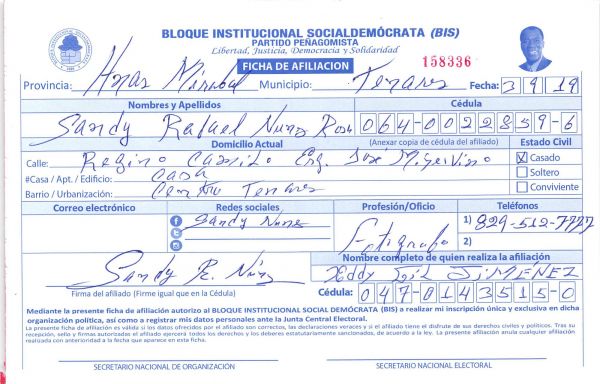 BLOQUE INSTITUCIONAL SOCIALDEMÓCRATA (BIS)
PARTIDO PEÑAGOMISTA
Libertad, Justicia, Democracia y Solidaridad
FICHA DE AFILIACION
158336
Provincia: Hnas Mirabal Municipio: Tenares Fecha: 3 9 19
Nombres y Apellidos Cédula
Sandy Rafael Nunez Rosa 064-0022859-6
Domicilio Actual (Anexar copia de cédula del afiliado) Estado Civil
Calle: Regino Camilo Esq. Jose
#Casa / Apt. / Edificio: Casa
Barrio / Urbanización: Centro Tenares
Casado
Soltero
Conviviente
Correo electrónico Redes sociales Profesión/Oficio Teléfonos
Sandy Nunez
Fotografo
1) 829-512-7777
2)
Nombre completo de quien realiza la afiliación
Eddy JIMÉNEZ
Sandy R. Núñez
Firma del afiliado (Firme igual que en la Cédula) Cédula: 047-0143515-0
Mediante la presente ficha de afiliación autorizo al BLOQUE INSTITUCIONAL SOCIAL DEMÓCRATA (BIS) a realizar mi inscripción única y exclusiva en dicha
organización política, así como a registrar mis datos personales ante la Junta Central Electoral.
La presente ficha de afiliación es válida si los datos ofrecidos por el afiliado son correctos, las declaraciones veraces y si el afiliado tiene el disfrute de sus derechos civiles y políticos. Tras su
recepción, sello y firmas autorizadas el afiliado ejercerá todos los derechos y los deberes estatutariamente sancionados, de acuerdo a la ley. La presente afiliación anula cualquier afiliación
realizada con anterioridad a la fecha que aparece en esta ficha.
SECRETARIO NACIONAL DE ORGANIZACIÓN SECRETARIO NACIONAL ELECTORAL